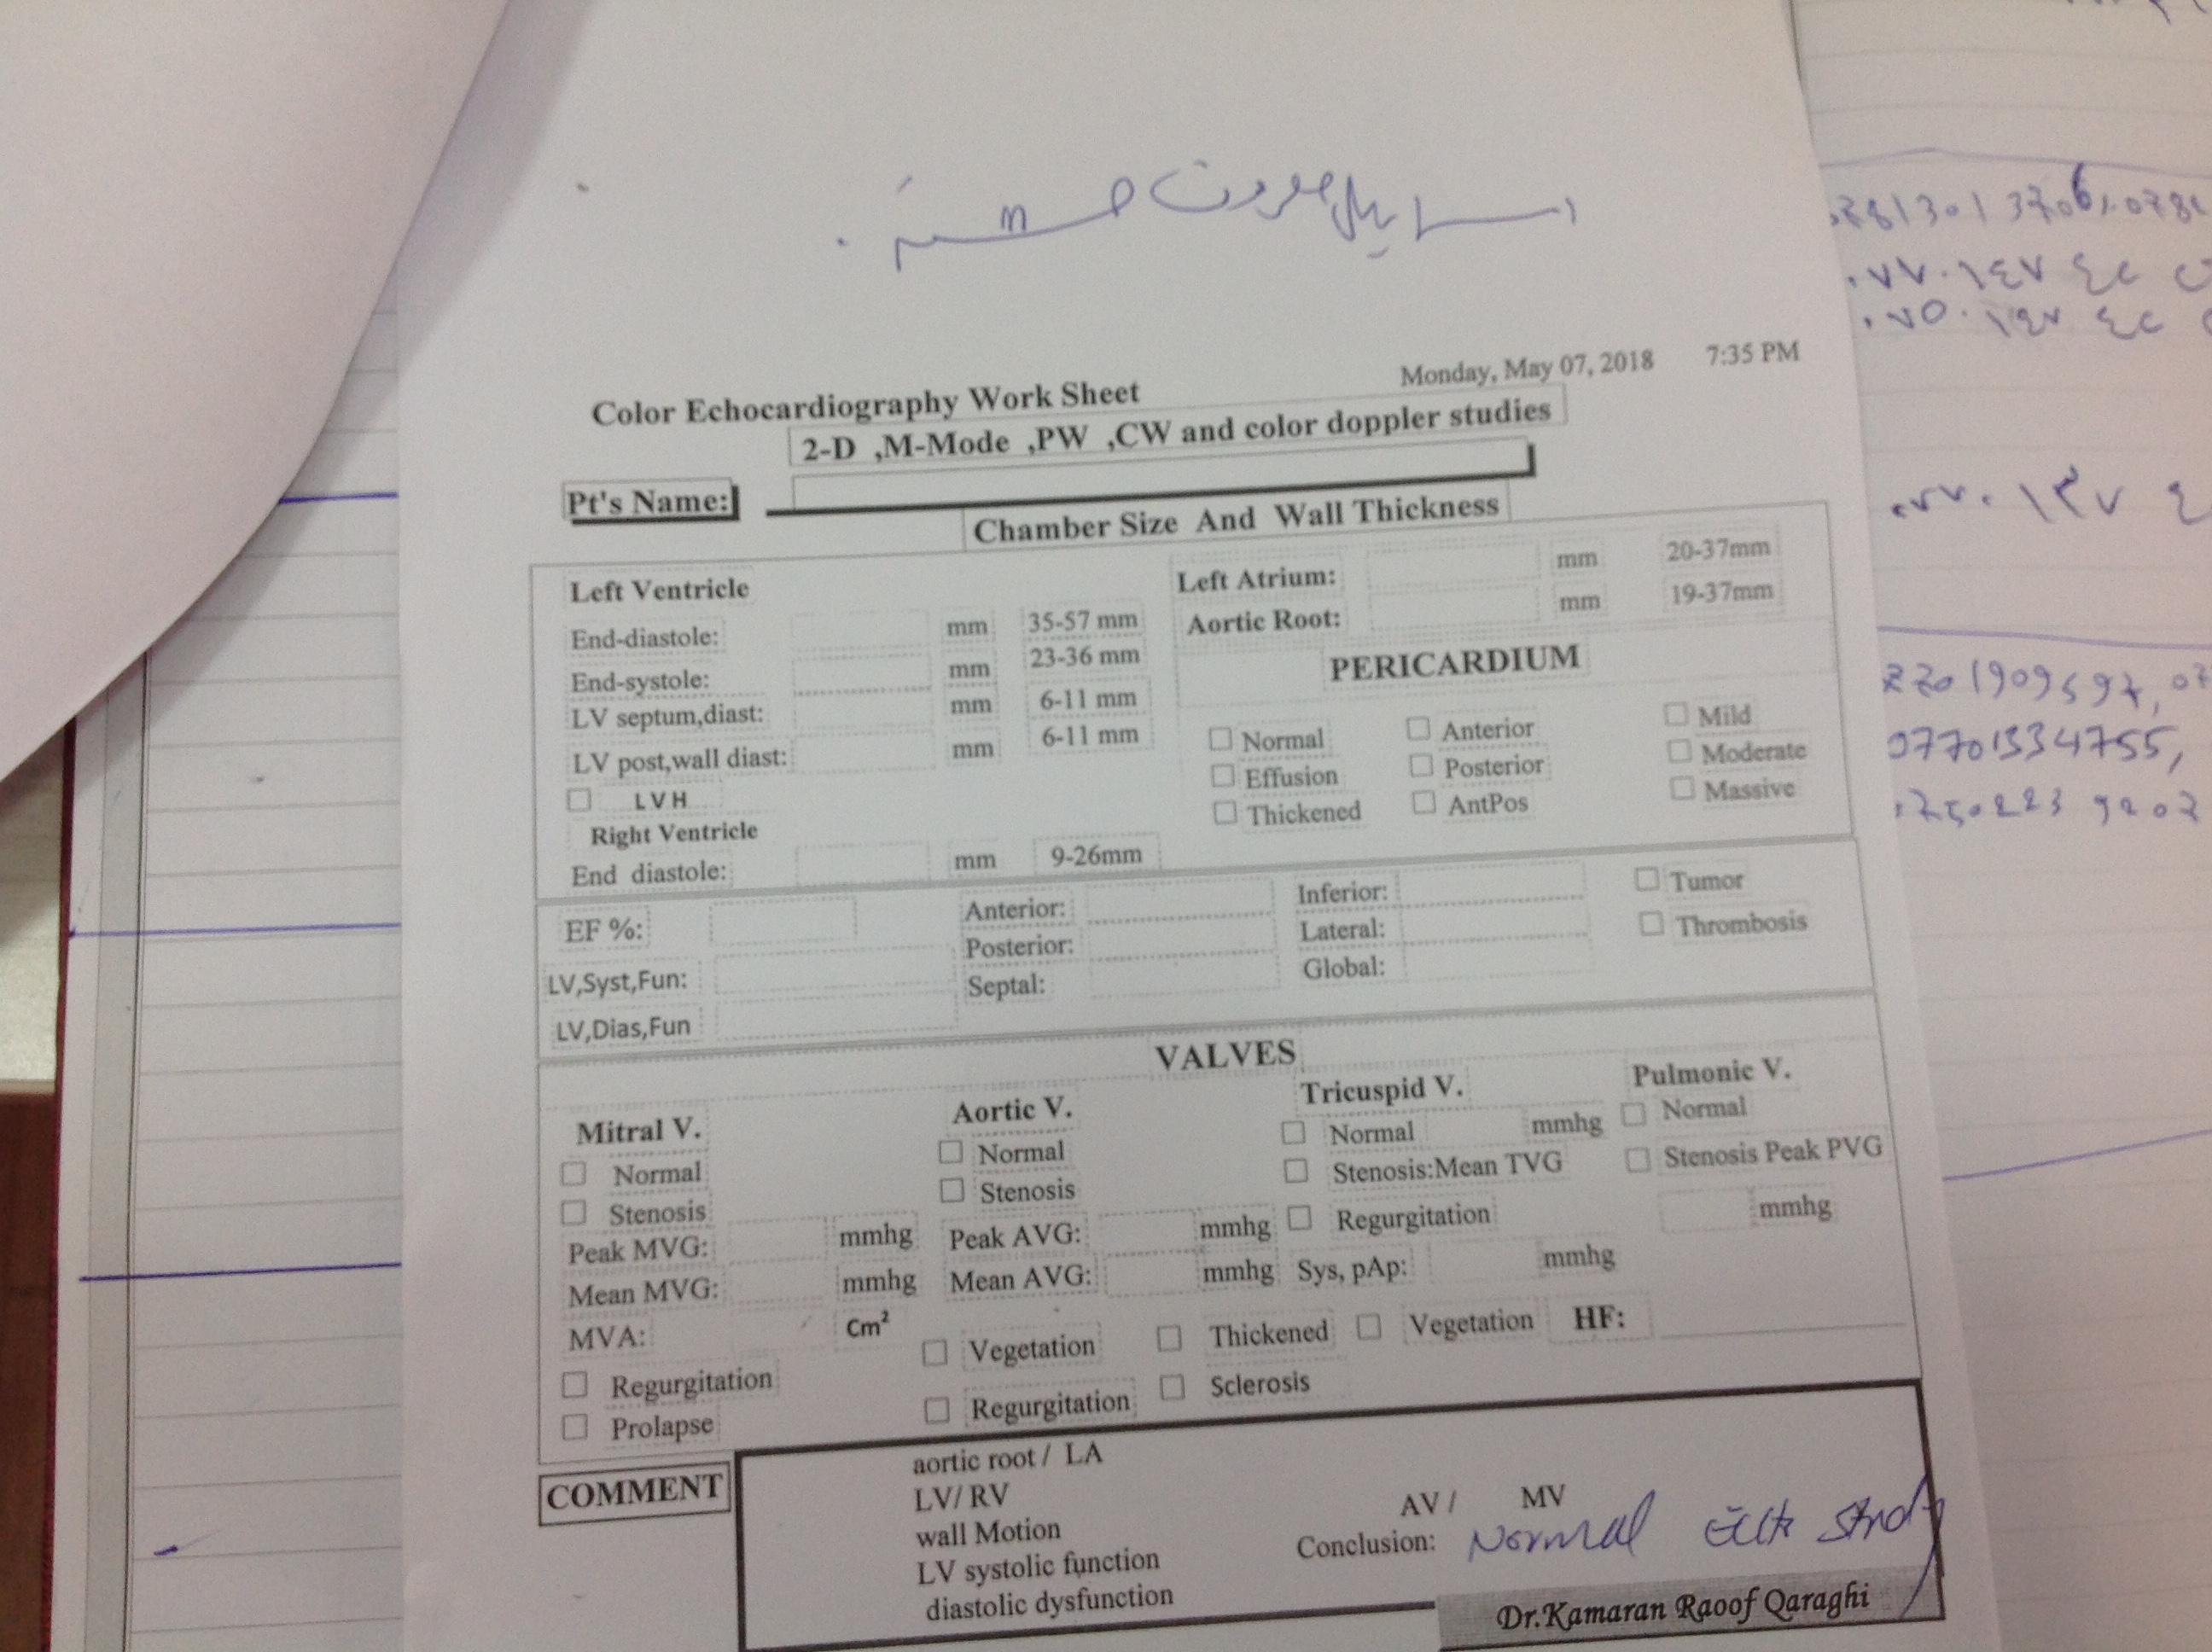 Monday, May 07, 2018 7:35 PM
Color Echocardiography Work Sheet
2-D ,M-Mode ,PW ,CW and color doppler studies
Pt's Name:
Chamber Size And Wall Thickness
Left Ventricle
End-diastole: mm 35-57 mm
End-systole: mm 23-36 mm
LV septum,diast: mm 6-11 mm
LV post,wall diast: mm 6-11 mm
LVH
Right Ventricle
End diastole: mm 9-26mm
Left Atrium: mm 20-37mm
Aortic Root: mm 19-37mm
PERICARDIUM
Normal Anterior Mild
Effusion Posterior Moderate
Thickened AntPos Massive
EF %: Anterior: Inferior: Tumor
LV,Syst,Fun: Posterior: Lateral: Thrombosis
LV,Dias,Fun Septal: Global:
VALVES
Mitral V.
Normal
Stenosis
Peak MVG: mmhg
Mean MVG: mmhg
MVA: Cm²
Regurgitation
Prolapse
Aortic V.
Normal
Stenosis
Peak AVG: mmhg
Mean AVG: mmhg
Vegetation Thickened
Regurgitation Sclerosis
Tricuspid V.
Normal mmhg
Stenosis:Mean TVG
Regurgitation
Sys, pAp: mmhg
Vegetation
Pulmonic V.
Normal
Stenosis Peak PVG
mmhg
HF:
COMMENT
aortic root / LA
LV/ RV
wall Motion
LV systolic function
diastolic dysfunction
AV / MV
Conclusion: Normal study
Dr.Kamaran Raoof Qaraghi
07701334755,